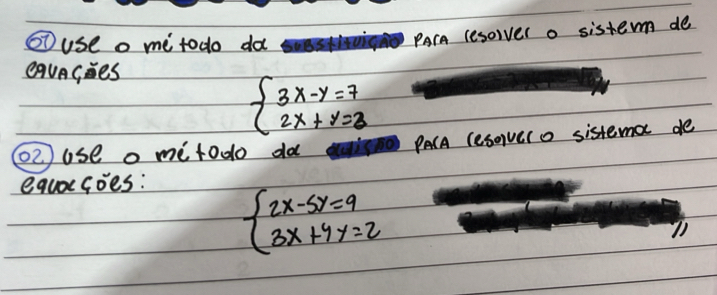 01 Use o método da substituição PARA resolver o sistem de
equações
3x-y=7
2x+y=3
02 use o método da adição PARA resolver o sistema de
equações:
2x-5y=9
3x+4y=2